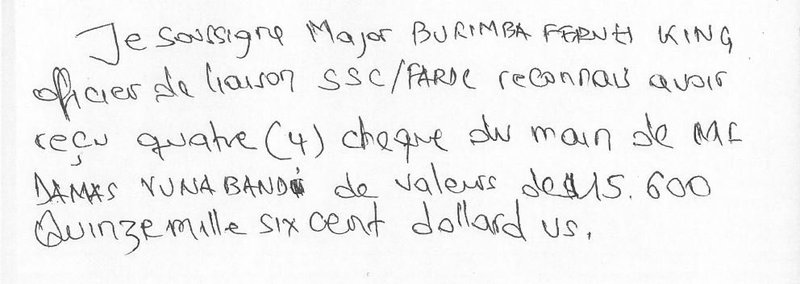 Je soussigne Major BURIMBA FERUZI KING
officier de liaison SSC/FARDC reconnais avoir
reçu quatre (4) cheque du main de Mr
DAMAS VUNABANDI de valeurs de $15.600
Quinze mille six cent dollard us.